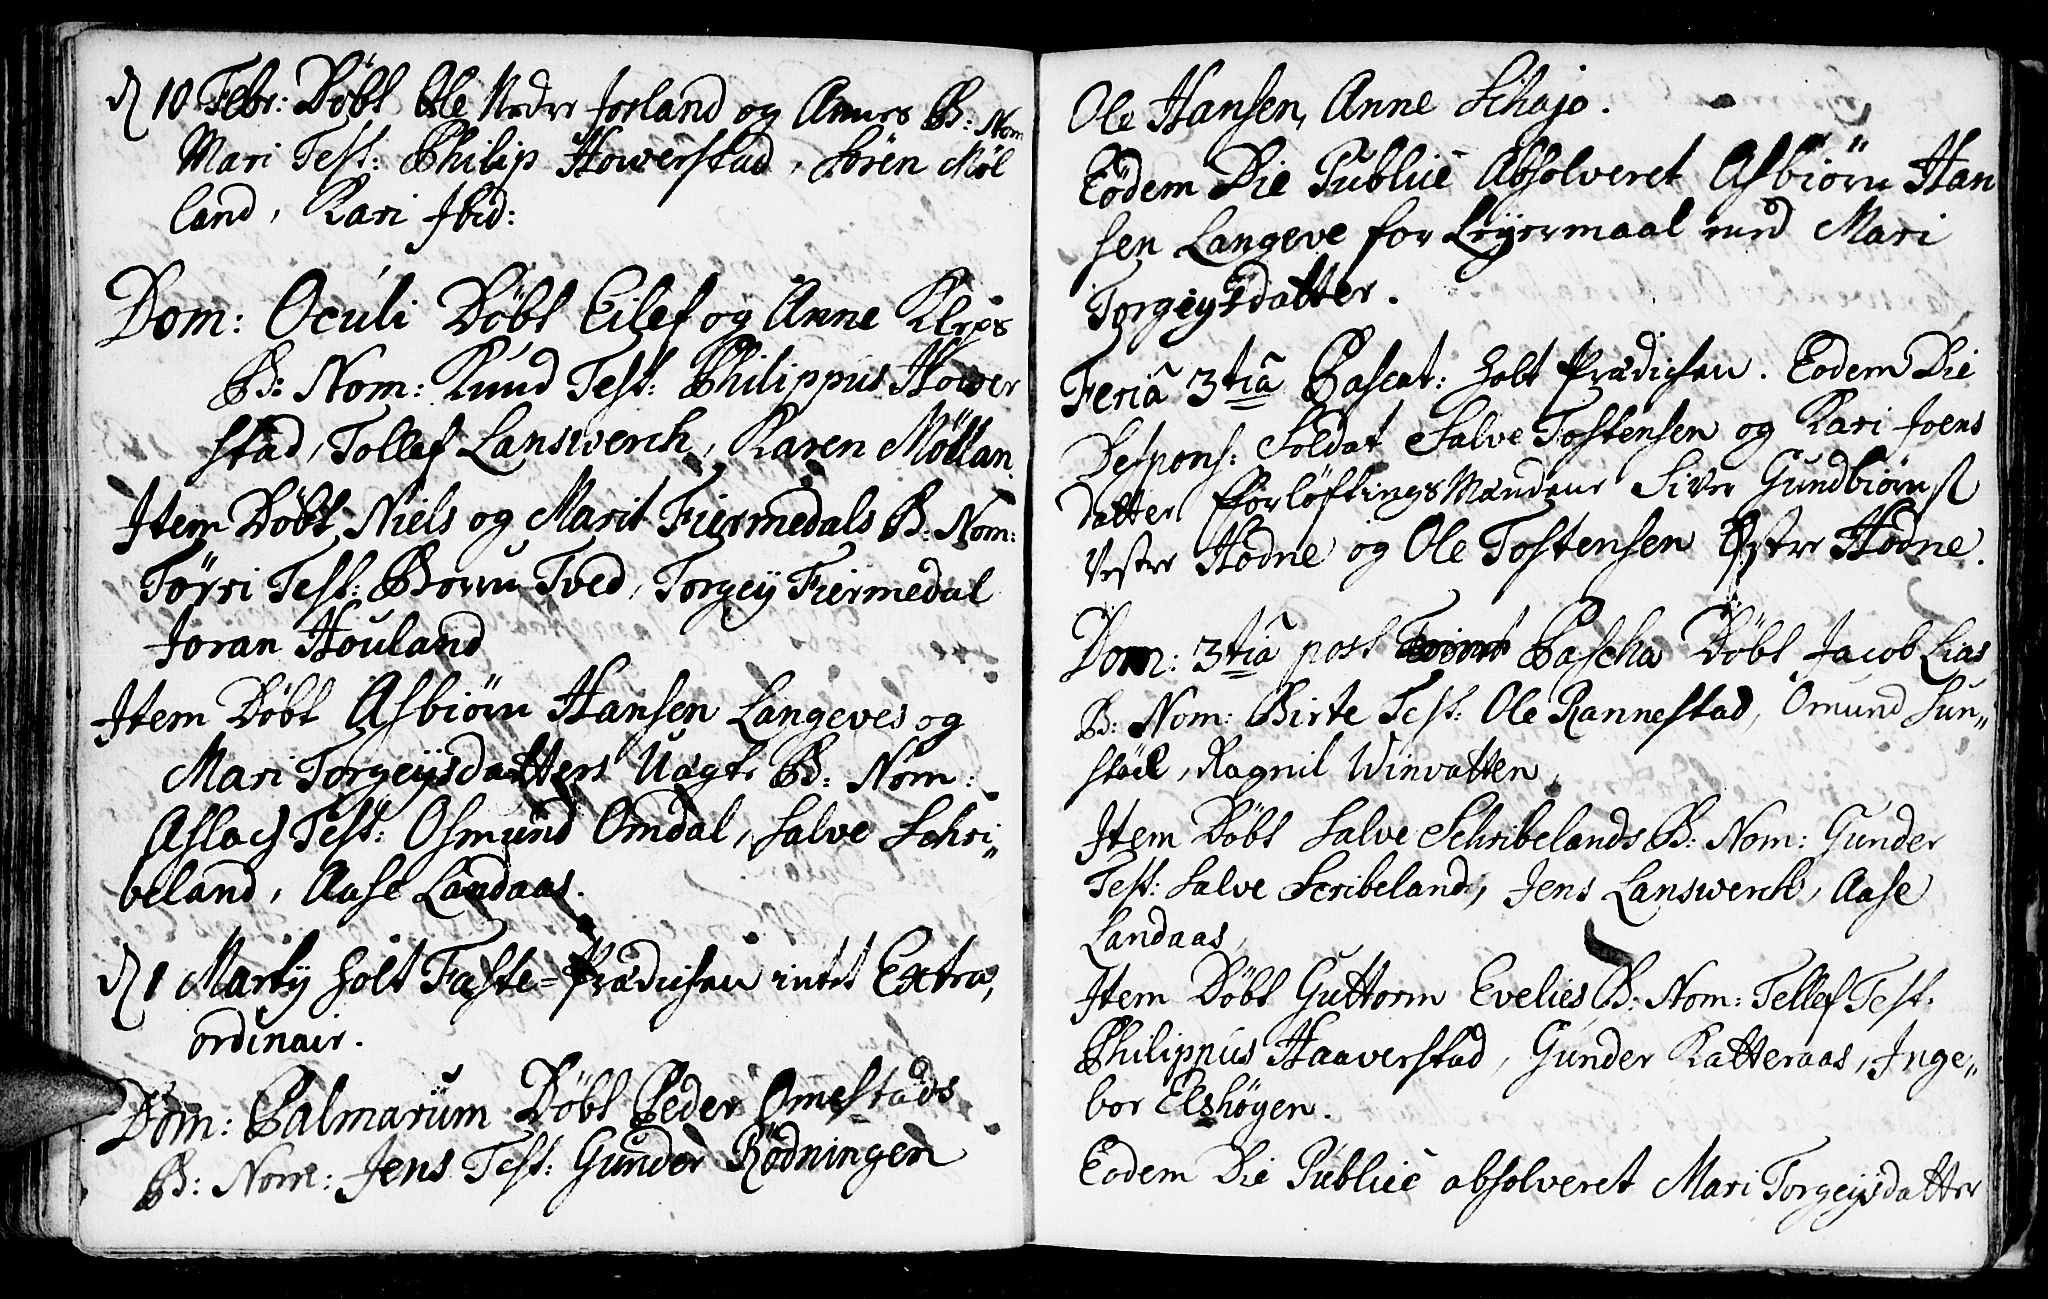 d 10 Febr: Döbt Ole Nedre Jorland og Annes B: Nom
Mari Test: Philip Howerstad, Sören Möl
land, Kari Ibid:
Dom: Oculi Döbt Eilef og Anne Kleps
B: Nom: Knud Test: Philippus Hower
stad, Tollef Lanswerch, Karen Möllan
Item Döbt Niels og Marit Fiermedals B: Nom:
Törri Test: Borru Tved, Torgey Fiermedal
Joran Houland
Item Döbt Asbiörn Hansen Langeves og
Mari Torgeysdatters Uægte B: Nom:
Aslach Test: Osmund Omdal, Salve Schri„
beland, Aase Landaas.
d 1 Marty holt Faste=Prædichen intet Extra,
ordinair.
Dom: Palmarum Döbt Peder Omestads
B: Nom: Jens Test: Gunder Rödningen
Ole Hansen, Anne Schajo.
Eodem Die Public Absolveret Asbiörn Han
sen Langeve for Leyermaal med Mari
Torgeysdatter.
Feria 3tia Pascat: holt Prædichen. Eodem Die
Despons: Soldat Salve Tostensen og Kari Joens
datter Forlöftings Mændene Siver Gundbiörns
Vestre Hodne og Ole Tostensen Östre Hodne.
Dom: 3tia post Pascha Döbt Jacob Lias
B: Nom: Birte Test: Ole Rannestad, Omund Sun„
stöel, Ragnil Winvatten,
Item Döbt Salve Schribelands B: Nom: Gunder
Test: Salve Scribeland, Jens Lanswerch, Aase
Landaas,
Item Döbt Guttorm Evelies B: Nom: Tellef Test:
Philippus Haaverstad, Gunder Katteraas, Inge„
bor Elshöyen.
Eodem Die Public absolveret Mari Torgeysdatter